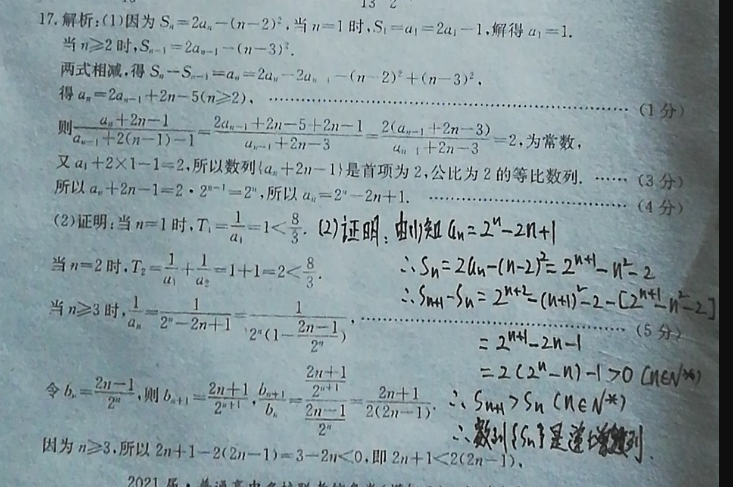 17.解析:(1)因为 Sₙ=2aₙ-(n-2)²,当 n=1 时,S₁=a₁=2a₁-1,解得 a₁=1.
当 n≥2 时,Sₙ₋₁=2aₙ₋₁-(n-3)².
两式相减,得 Sₙ-Sₙ₋₁=aₙ=2aₙ-2aₙ₋₁-(n-2)²+(n-3)²,
得 aₙ=2aₙ₋₁+2n-5(n≥2), ………… (1分)
则 (aₙ+2n-1)/(aₙ₋₁+2(n-1)-1)=(2aₙ₋₁+2n-5+2n-1)/(aₙ₋₁+2n-3)=2(aₙ₋₁+2n-3)/(aₙ₋₁+2n-3)=2,为常数,
又 a₁+2×1-1=2,所以数列{aₙ+2n-1}是首项为 2,公比为 2 的等比数列. …… (3分)
所以 aₙ+2n-1=2·2ⁿ⁻¹=2ⁿ,所以 aₙ=2ⁿ-2n+1. ………… (4分)
(2)证明:当 n=1 时,T₁=1/a₁=1<8/3.
当 n=2 时,T₂=1/a₁+1/a₂=1+1=2<8/3.
当 n≥3 时,1/aₙ=1/(2ⁿ-2n+1)=1/(2ⁿ(1-(2n-1)/2ⁿ)), ………… (5分)
令 bₙ=(2n-1)/2ⁿ,则 bₙ₊₁=(2n+1)/2ⁿ⁺¹,bₙ₊₁/bₙ=((2n+1)/2ⁿ⁺¹)/((2n-1)/2ⁿ)=(2n+1)/(2(2n-1)).
因为 n≥3,所以 2n+1-2(2n-1)=3-2n<0,即 2n+1<2(2n-1),
(2)证明:由(1)知 aₙ=2ⁿ-2n+1
∴Sₙ=2aₙ-(n-2)²=2ⁿ⁺¹-n²-2
∴Sₙ₊₁-Sₙ=2ⁿ⁺²-(n+1)²-2-[2ⁿ⁺¹-n²-2]
=2ⁿ⁺¹-2n-1
=2(2ⁿ-n)-1>0 (n∈N*)
∴Sₙ₊₁>Sₙ (n∈N*)
∴数列{Sₙ}是递增数列.